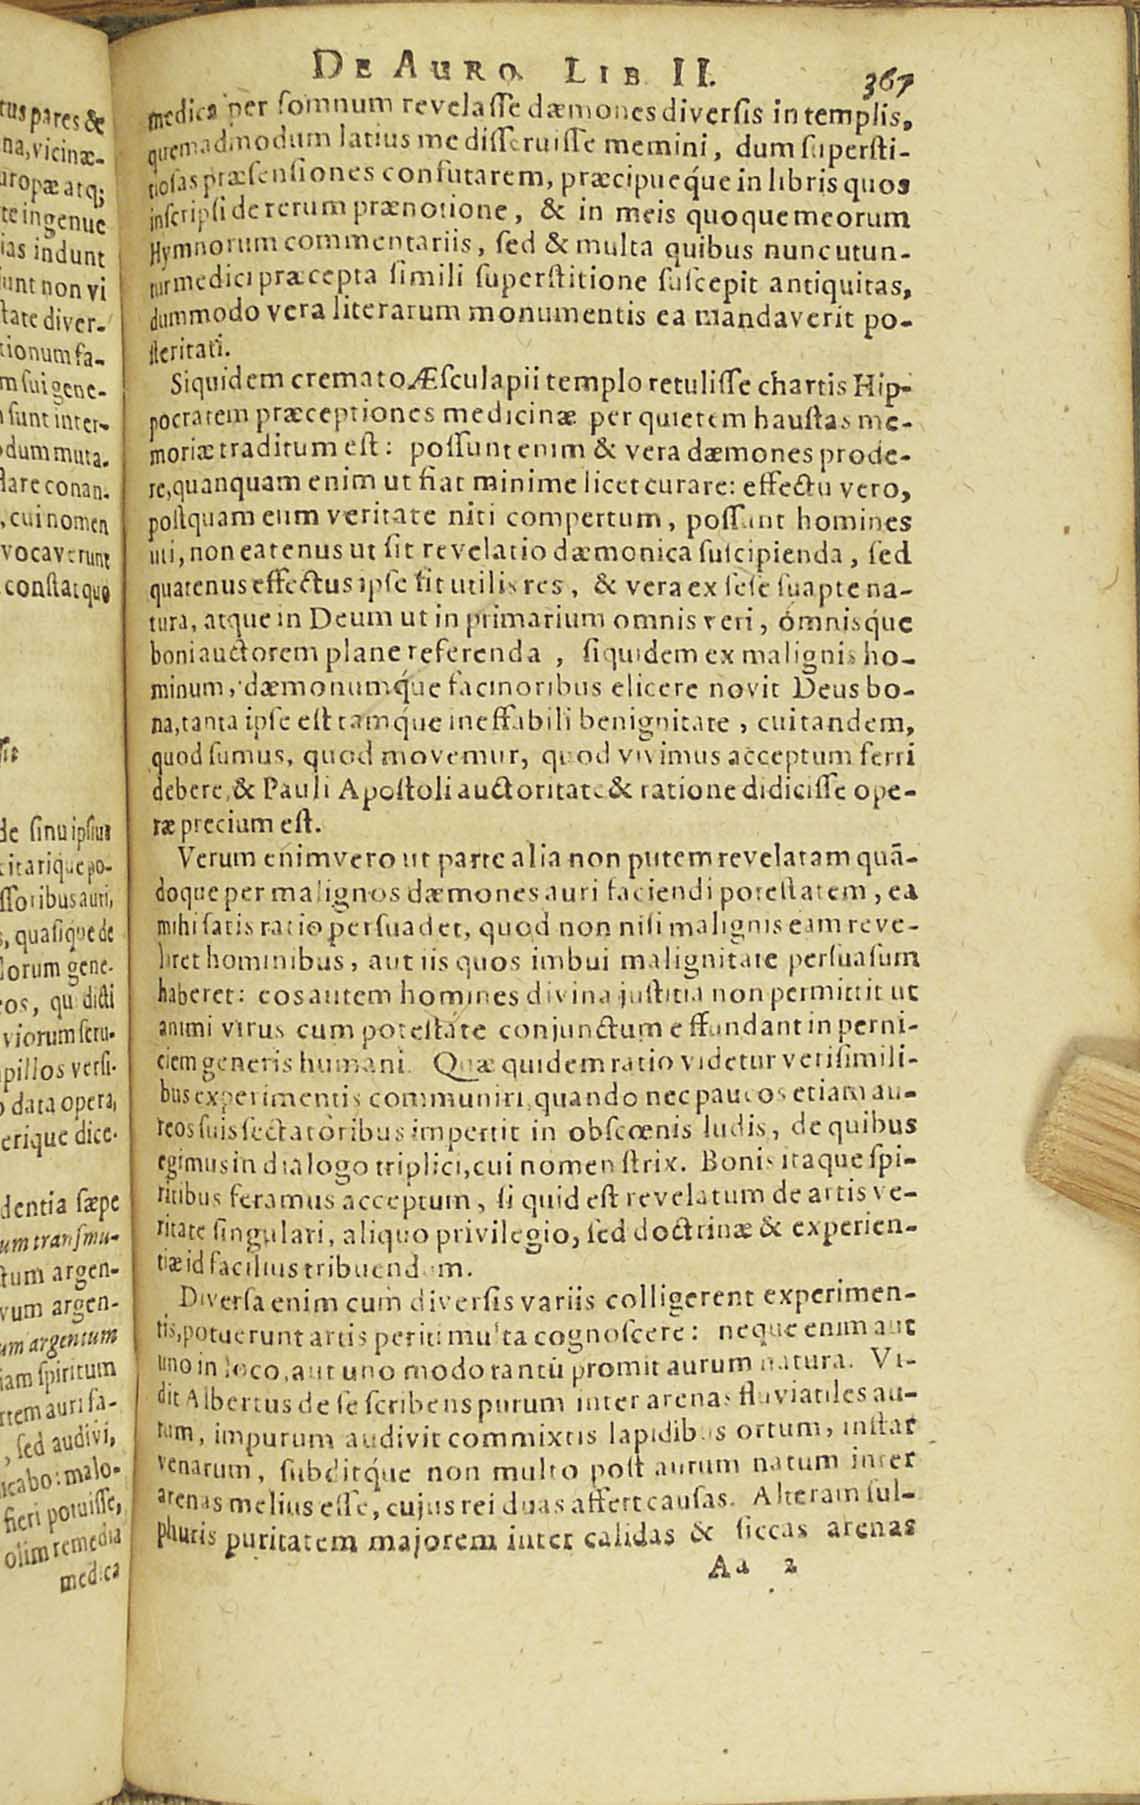 tus pares &
na, vicinæ-
uropæ atq;
te ingenue
ias indunt
unt non vi
tate diver-
tionum fa-
m sui gene-
sunt inter-
dum muta.
lare conan-
, cui nomen
vocaverunt
constat quo
de sinu ipsius
citarique po-
ssoribus auri,
, quasique de
lorum gene-
eos, qui dicti
viorum scru-
pillos versi-
o data opera,
erique dice-
dentia sæpe
um transmu-
tum argen-
vum argen-
um argentum
iam spiritum
rtem auri fa-
, sed audivi,
icabo: malo-
fieri potuisse,
olim remedia
medica
DE AURO LIB II. 367
medica per somnum revelasse dæmones diversis in templis,
quemadmodum latius me disseruisse memini, dum supersti-
tiosas præsensiones confutarem, præcipueq́ue in libris quos
inscripsi de rerum prænotione, & in meis quoque meorum
Hymnorum commentariis, sed & multa quibus nunc utun-
tur medici præcepta simili superstitione suscepit antiquitas,
dummodo vera literarum monumentis ea mandaverit po-
steritati.
Siquidem cremato Æsculapii templo retulisse chartis Hip-
pocratem præceptiones medicinæ per quietem haustas me-
moriæ traditum est: possunt enim & vera dæmones prode-
re, quanquam enim ut fiat minime licet curare: effectu vero,
postquam eum veritate niti compertum, possunt homines
uti, non eatenus ut sit revelatio dæmonica suscipienda, sed
quatenus effectus ipse sit utilis res, & vera ex sese suapte na-
tura, atque in Deum ut in primarium omnis veri, omnisq́ue
boni auctorem plane referenda, siquidem ex malignis ho-
minum, dæmonumq́ue facinoribus elicere novit Deus bo-
na, tanta ipse est tamq́ue ineffabili benignitate, cui tandem,
quod sumus, quod movemur, quod vivimus acceptum ferri
debere, & Pauli Apostoli auctoritate & ratione didicisse ope-
ræ precium est.
Verum enimvero ut parte alia non putem revelatam quã-
doque per malignos dæmones auri faciendi potestatem, ea
mihi satis ratio persuadet, quod non nisi malignis eam reve-
liret hominibus, aut iis quos imbui malignitate persuasum
haberet: eos autem homines divina justitia non permittit ut
animi virus cum potestate conjunctum effundant in perni-
ciem generis humani. Quæ quidem ratio videtur verisimili-
bus experimentis communiri, quando nec paucos etiam au-
reos suis sectatoribus impertit in obscœnis ludis, de quibus
egimus in dialogo triplici, cui nomen strix. Bonis itaque spi-
ritibus feramus acceptum, si quid est revelatum de artis ve-
ritate singulari, aliquo privilegio, sed doctrinæ & experien-
tiæ id facilius tribuendum.
Diversa enim cum diversis variis colligerent experimen-
tis, potuerunt artis periti multa cognoscere: neque enim aut
uno in loco, aut uno modo tantũ promit aurum natura. Vi-
dit Albertus de se scribens purum inter arenas fluviatiles au-
rum, impurum audivit commixtis lapidibus ortum, instar
venarum, subditq́ue non multo post aurum natum inter
arenas melius esse, cujus rei duas affert causas. Alteram sul-
phuris puritatem majorem inter calidas & siccas arenas
Aa 2